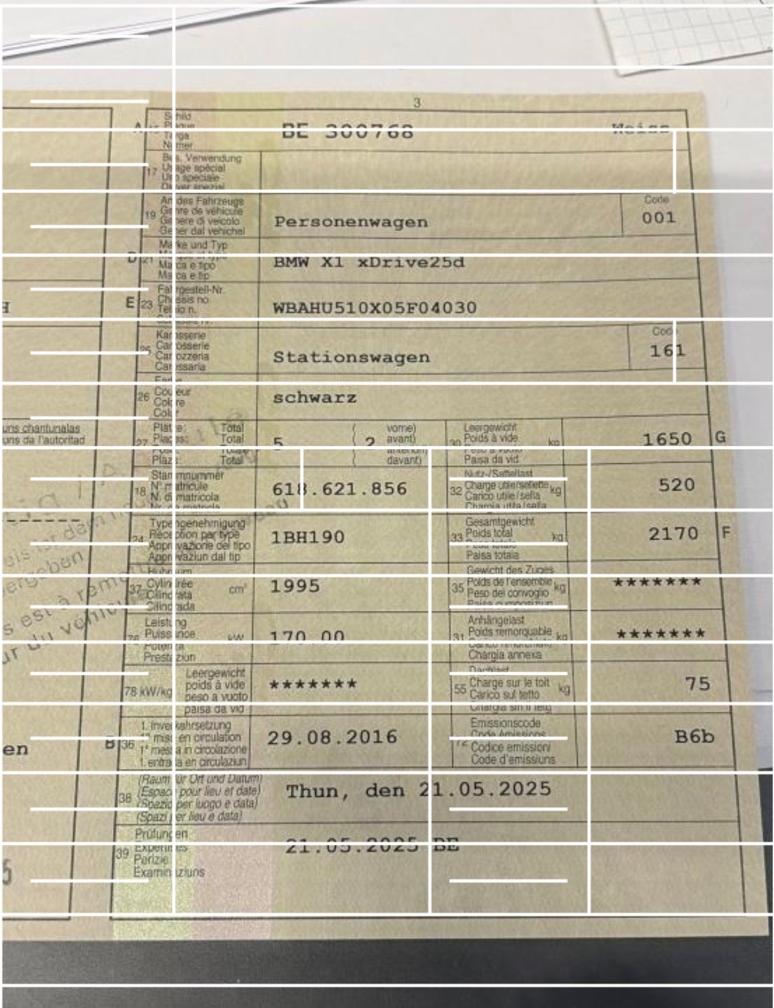 3
Schild
Plaque
Targa
Numer
BE 300768
Weiss
17
Bes. Verwendung
Usage spécial
Uso speciale
Diever spezial
19
Art des Fahrzeugs
Genre de véhicule
Genere di veicolo
Gener dal vehichel
Personenwagen
Code
001
D 21
Marke und Typ
Marca e tipo
Marca e tip
BMW X1 xDrive25d
E 23
Fahrgestell-Nr.
Châssis no
Telaio n.
WBAHU510X05F04030
25
Karosserie
Carosserie
Carrozzeria
Carossaria
Stationswagen
Code
161
26
Couleur
Colore
Colur
schwarz
uns chantunalas
uns da l'autoritad
27
Plätze: Total
Places: Total
Plazs: Total
5
( 2
vorne)
avant)
anteriori)
davant)
30
Leergewicht
Poids à vide
Paisa da vid
kg
1650
G
18
Stammnummer
N° matricule
N. di matricola
618.621.856
32
Nutz-/Sattellast
Charge utile/sellette
Carico utile/sella
Chargia utila/sella
kg
520
24
Typengenehmigung
Réception par type
Approvazione del tipo
Approvaziun dal tip
1BH190
33
Gesamtgewicht
Poids total
Paisa totala
kg
2170
F
37
Hubraum
Cylindrée
Cilindrata
Cilindrada
cm³
1995
35
Gewicht des Zuges
Poids de l'ensemble
Peso del convoglio
kg
*******
76
Leistung
Puissance
Potenza
Prestaziun
kW
170.00
31
Anhängelast
Poids remorquable
Carico rimorchiato
Chargia annexa
kg
*******
78 kW/kg
Leergewicht
poids à vide
peso a vuoto
paisa da vid
*******
55
Dachlast
Charge sur le toit
Carico sul tetto
Chargia sin il tetg
kg
75
en
B 36
1. Inverkehrsetzung
1re mise en circulation
1a messa in circolazione
1. entrada en circulaziun
29.08.2016
72
Emissionscode
Code émissions
Codice emissioni
Code d'emissiuns
B6b
38
(Raum für Ort und Datum)
(Espace pour lieu et date)
(Spazio per luogo e data)
(Spazi per lieu e data)
Thun, den 21.05.2025
39
Prüfungen
Expertises
Perizie
Examinaziuns
21.05.2025 BE